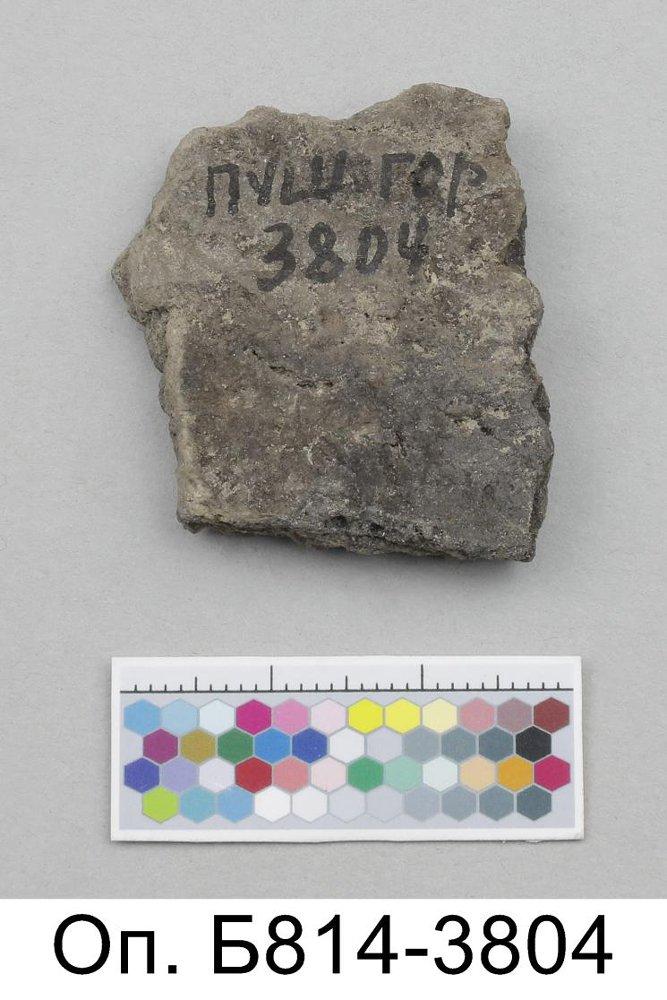 ПУШ ГОР
3804
Оп. Б814-3804